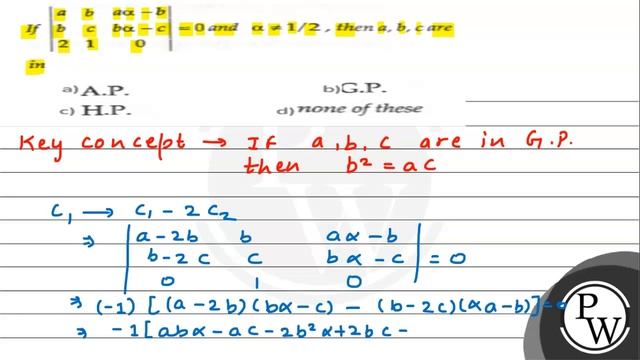 If | a b aα – b |
| b c bα – c | = 0 and α ≠ 1/2 , then a, b, c are
| 2 1 0 |
in
a) A.P. b) G.P.
c) H.P. d) none of these
Key concept → If a, b, c are in G.P.
then b² = ac
C₁ → C₁ – 2C₂
⇒ | a – 2b b aα – b |
| b – 2c c bα – c | = 0
| 0 1 0 |
⇒ (-1) [(a – 2b)(bα – c) – (b – 2c)(αa – b)] = 0
⇒ -1 [abα – ac – 2b²α + 2bc –
PW